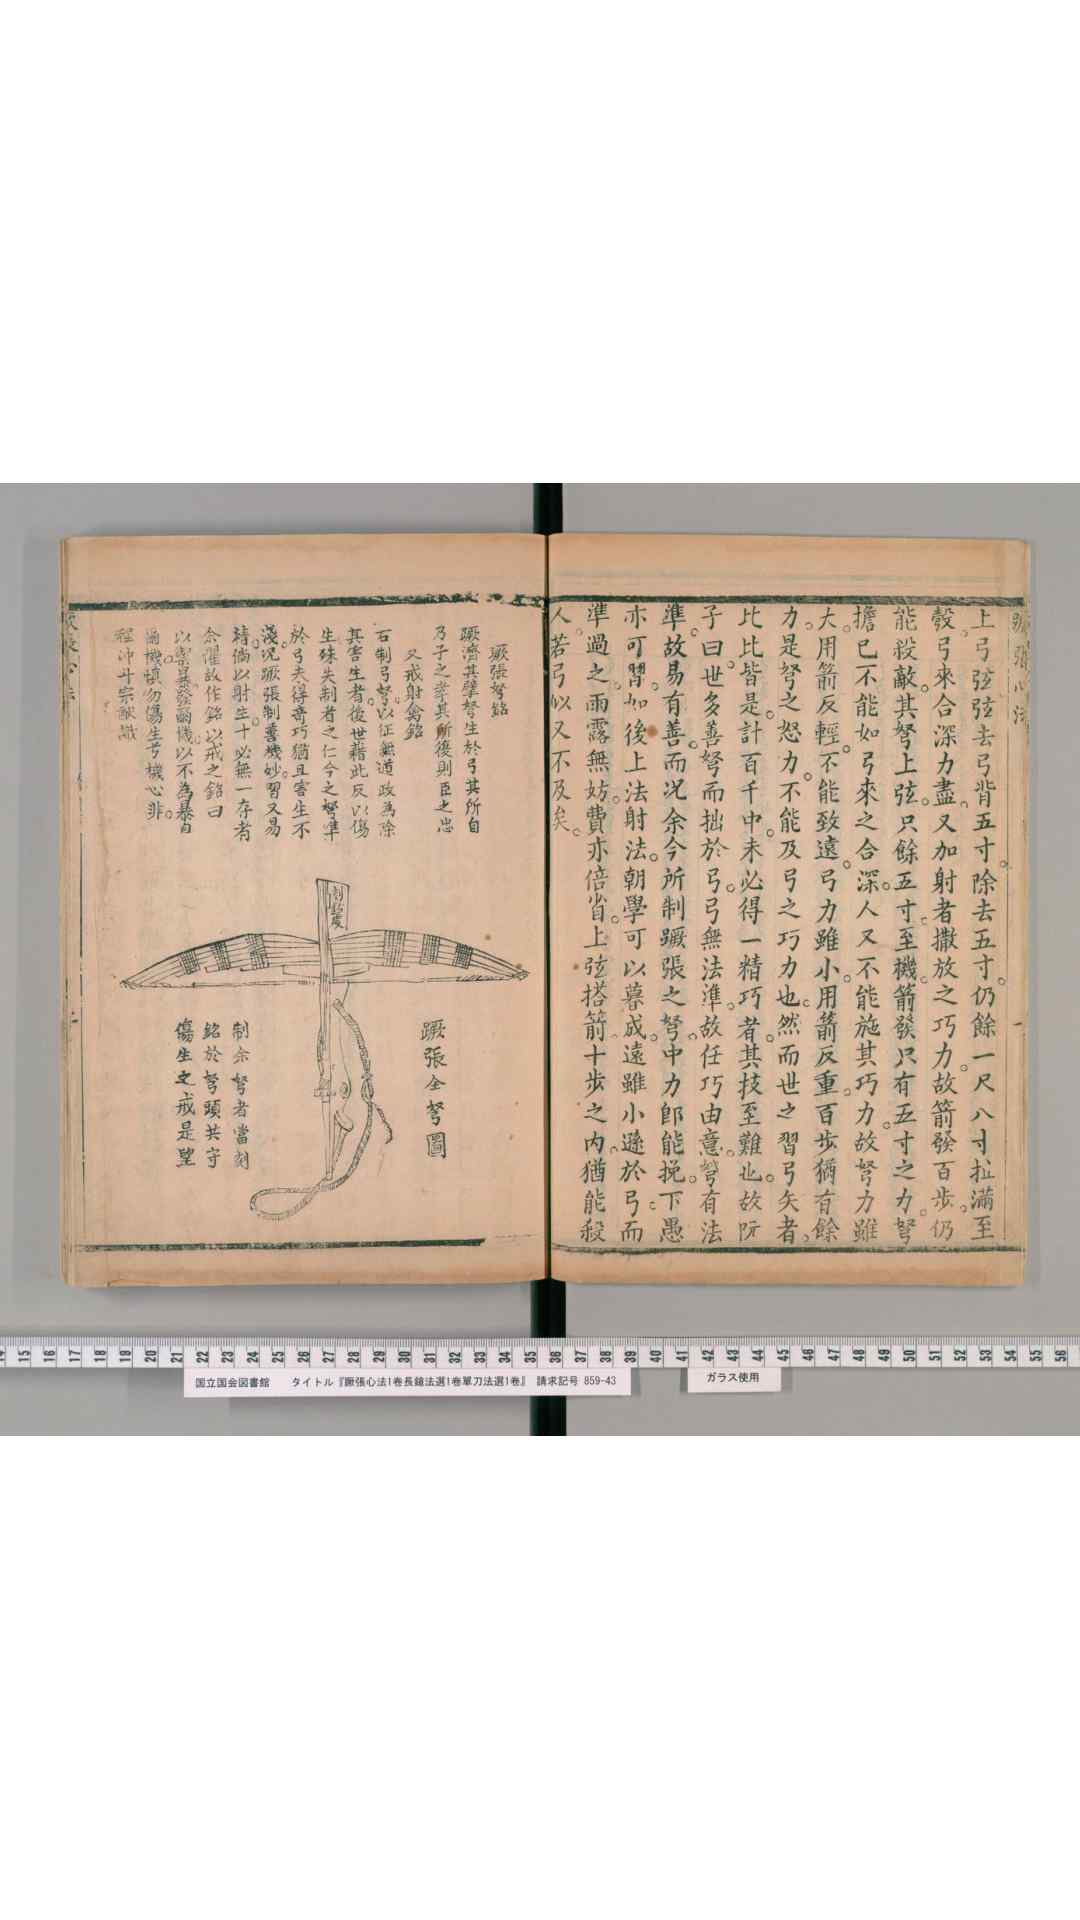 蹶張心法
上弓弦弦去弓背五寸。除去五寸。仍餘一尺八寸。拉滿至
彀。弓來合深力盡。又加射者撒放之巧力。故箭發百步。仍
能殺敵。其弩上弦。只餘五寸。至機箭發。只有五寸之力。弩
擔已不能如弓來之合深。人又不能施其巧力。故弩力雖
大。用箭反輕。不能致遠。弓力雖小。用箭反重。百步猶有餘
力。是弩之怒力。不能及弓之巧力也。然而世之習弓矢者。
比比皆是。計百千中。未必得一精巧者。其技至難也。故阮
子曰。世多善弩而拙於弓。弓無法準。故任巧由意。弩有法
準。故易有善。而况余今所制蹶張之弩。中力卽能挽。下愚
亦可習。如後上法射法。朝學可以暮成。遠雖小遜於弓。而
準過之。雨露無妨。費亦倍省。上弦搭箭。十步之內。猶能殺
人。若弓似又不及矣。
一
蹶張弩銘
蹶濟其擘弩生於弓其所自
乃子之孝其所後則臣之忠
又戒射禽銘
石制弓弩。以征無道政為除
其害生者。後世藉此反以傷
生殊失制者之仁今之弩準
於弓夫得奇巧猶且害生不
淺。况蹶張制善機妙。習又易
精。倘以射生。十必無一存者
余懼故作銘以戒之銘曰
以禦暴發爾機以不為暴自
爾機慎勿傷生兮機心非。
程沖斗宗猷識
蹶張全弩圖
制余弩者當刻
銘於弩頭共守
傷生之戒是望
14 15 16 17 18 19 20 21 22 23 24 25 26 27 28 29 30 31 32 33 34 35 36 37 38 39 40 41 42 43 44 45 46 47 48 49 50 51 52 53 54 55 56
国立国会図書館 タイトル『蹶張心法1巻長鎗法選1巻單刀法選1巻』 請求記号 859-43
ガラス使用